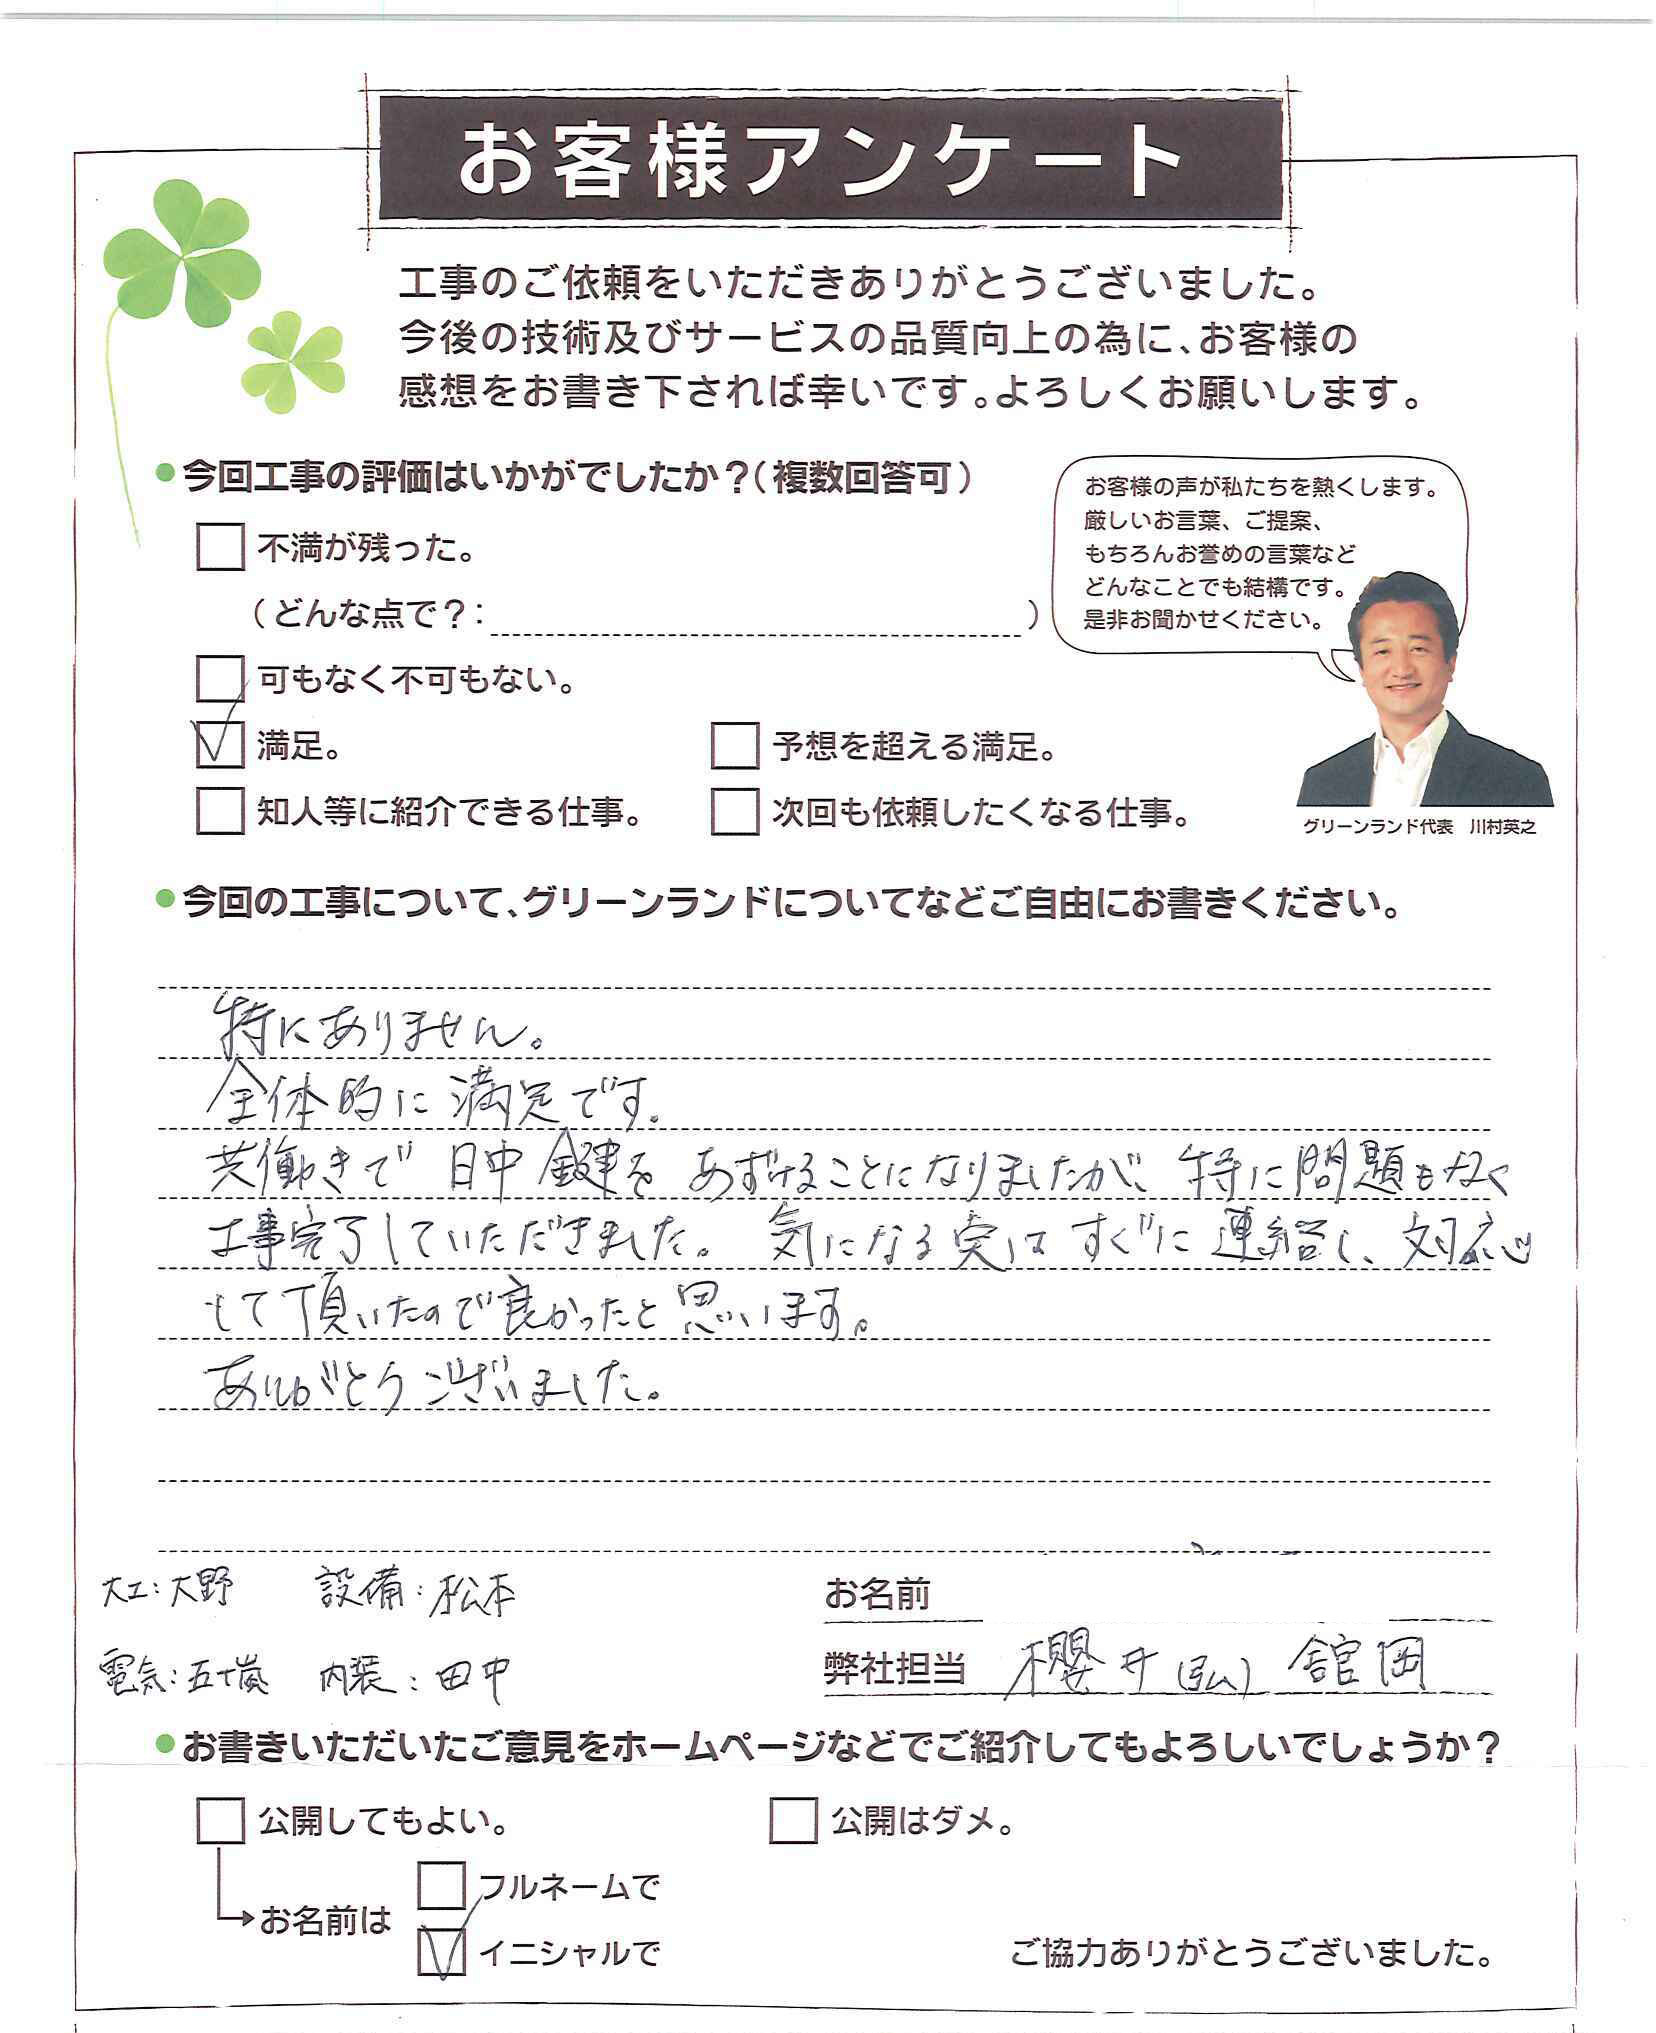 お客様アンケート
工事のご依頼をいただきありがとうございました。
今後の技術及びサービスの品質向上の為に、お客様の
感想をお書き下されば幸いです。よろしくお願いします。
●今回工事の評価はいかがでしたか？（複数回答可）
不満が残った。
（どんな点で？：　）
可もなく不可もない。
満足。
予想を超える満足。
知人等に紹介できる仕事。
次回も依頼したくなる仕事。
お客様の声が私たちを熱くします。
厳しいお言葉、ご提案、
もちろんお誉めの言葉など
どんなことでも結構です。
是非お聞かせください。
グリーンランド代表　川村英之
●今回の工事について、グリーンランドについてなどご自由にお書きください。
特にありません。
全体的に満足です。
共働きで 日中 鍵を あずけることになりましたが、特に問題もなく
工事完了していただきました。気になる実はすぐに連絡し、対応
して頂いたので良かったと思います。
ありがとうございました。
大工：大野　設備：松本
電気：五十嵐　内装：田中
お名前
弊社担当　櫻井(弘)　舘岡
●お書きいただいたご意見をホームページなどでご紹介してもよろしいでしょうか？
公開してもよい。
公開はダメ。
お名前は
フルネームで
イニシャルで
ご協力ありがとうございました。